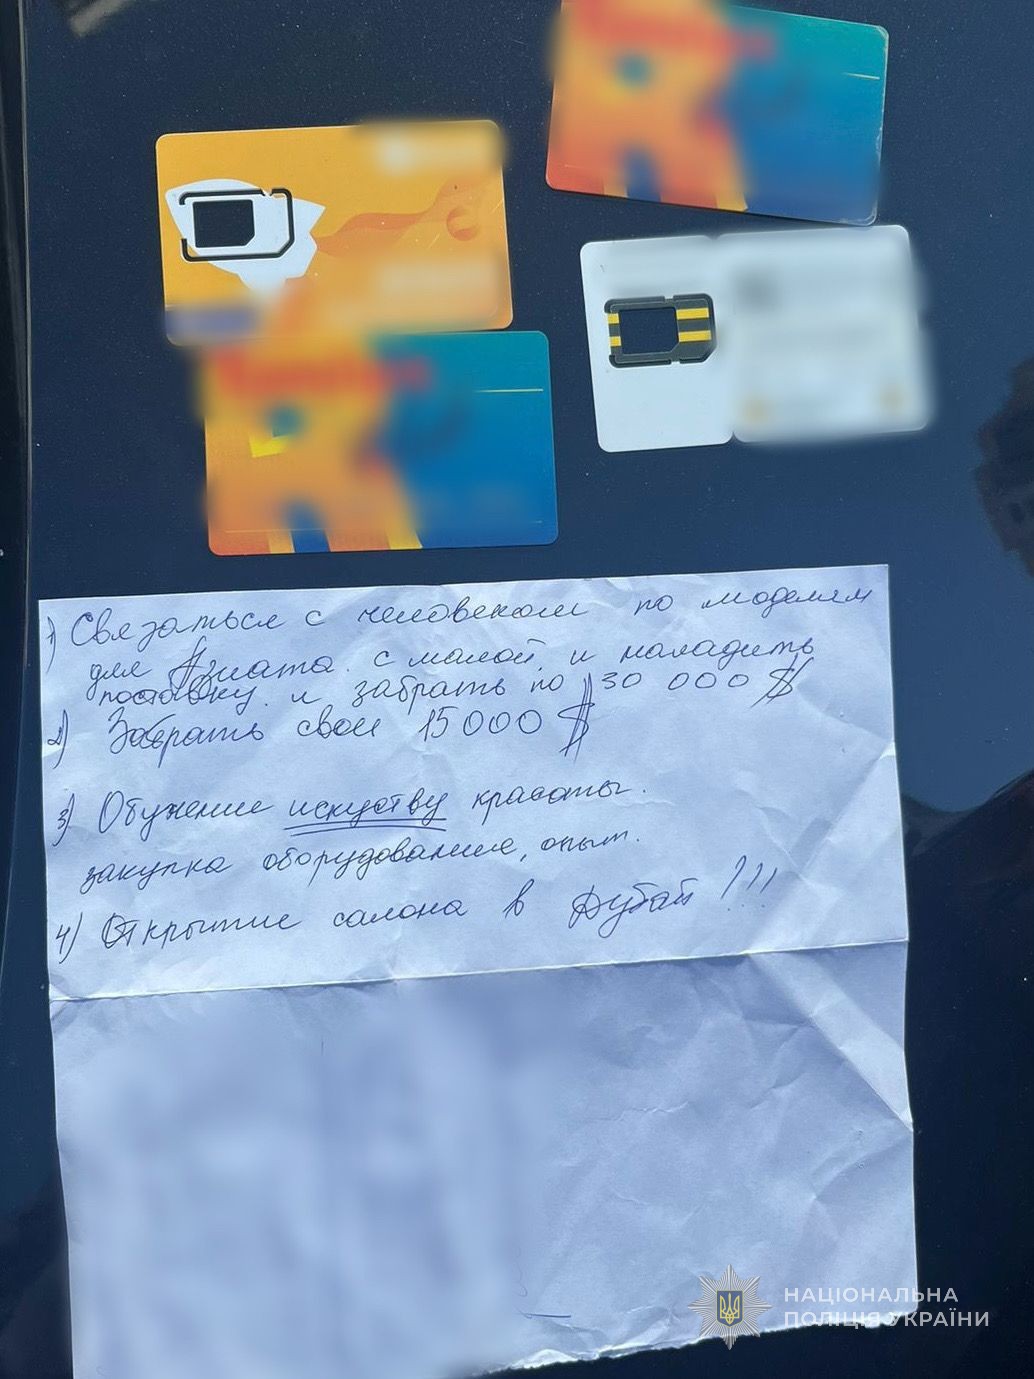 1) Связаться с человеком по моделям
для Азиата. с малой, и наладить
поставку. и забрать по 30 000 $
2) Забрать свои 15000 $
3) Обучение искуству красоты.
закупка оборудование, опыт.
4) Открытие салона в Дубай!!!
НАЦІОНАЛЬНА
ПОЛІЦІЯ УКРАЇНИ